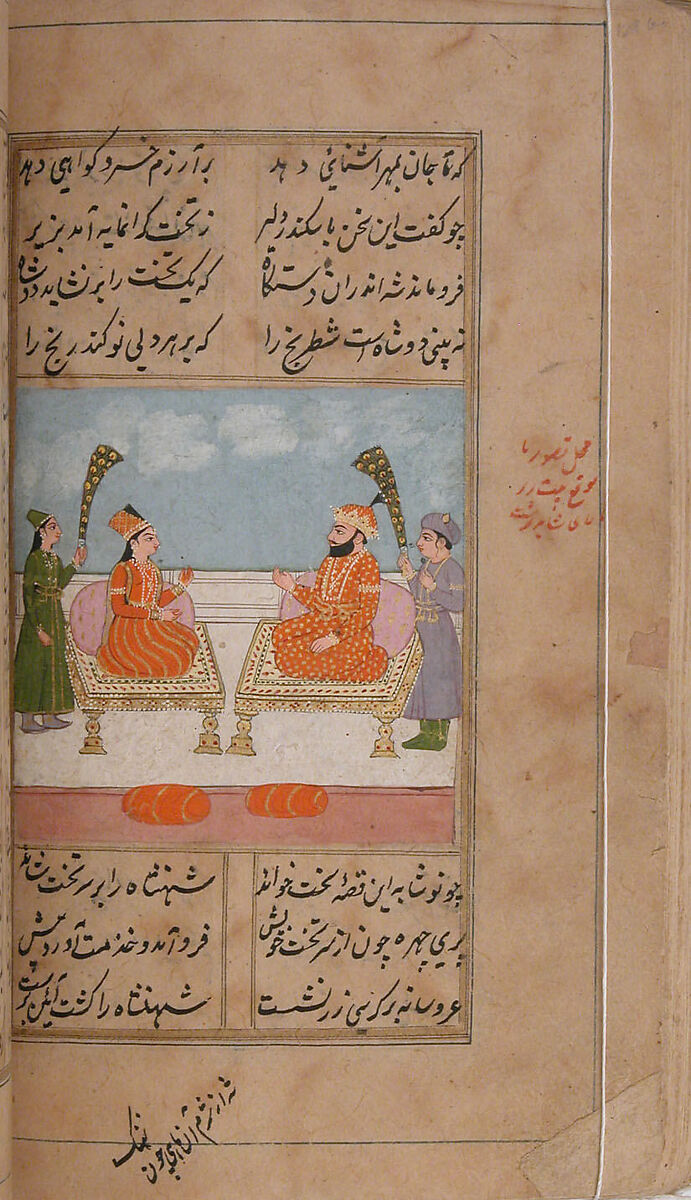 که تا جان بمهر آشنائی دهد بر آرزم خسرو گواهی دهد
چو گفت این سخن با سکندر دلیر ز تخت گرانمایه آمد بزیر
فرو ماند شه اندران دستگاه که یک تخت را بر نشاید دو شاه
نه بینی دو شاه است شطرنج را که بر هر دلی نو کند رنج را
محل تصویر
چو نوشابه این قصهٔ تخت خواند شهنشاه را بر سر تخت نشاند
پری چهره چون از سر تخت خویش فرو آمد و خدمت آورد پیش
عروسانه بر کرسی زر نشست شهنشاه را گشت آئین پرست
شه از شرم آن چون
نهنگ